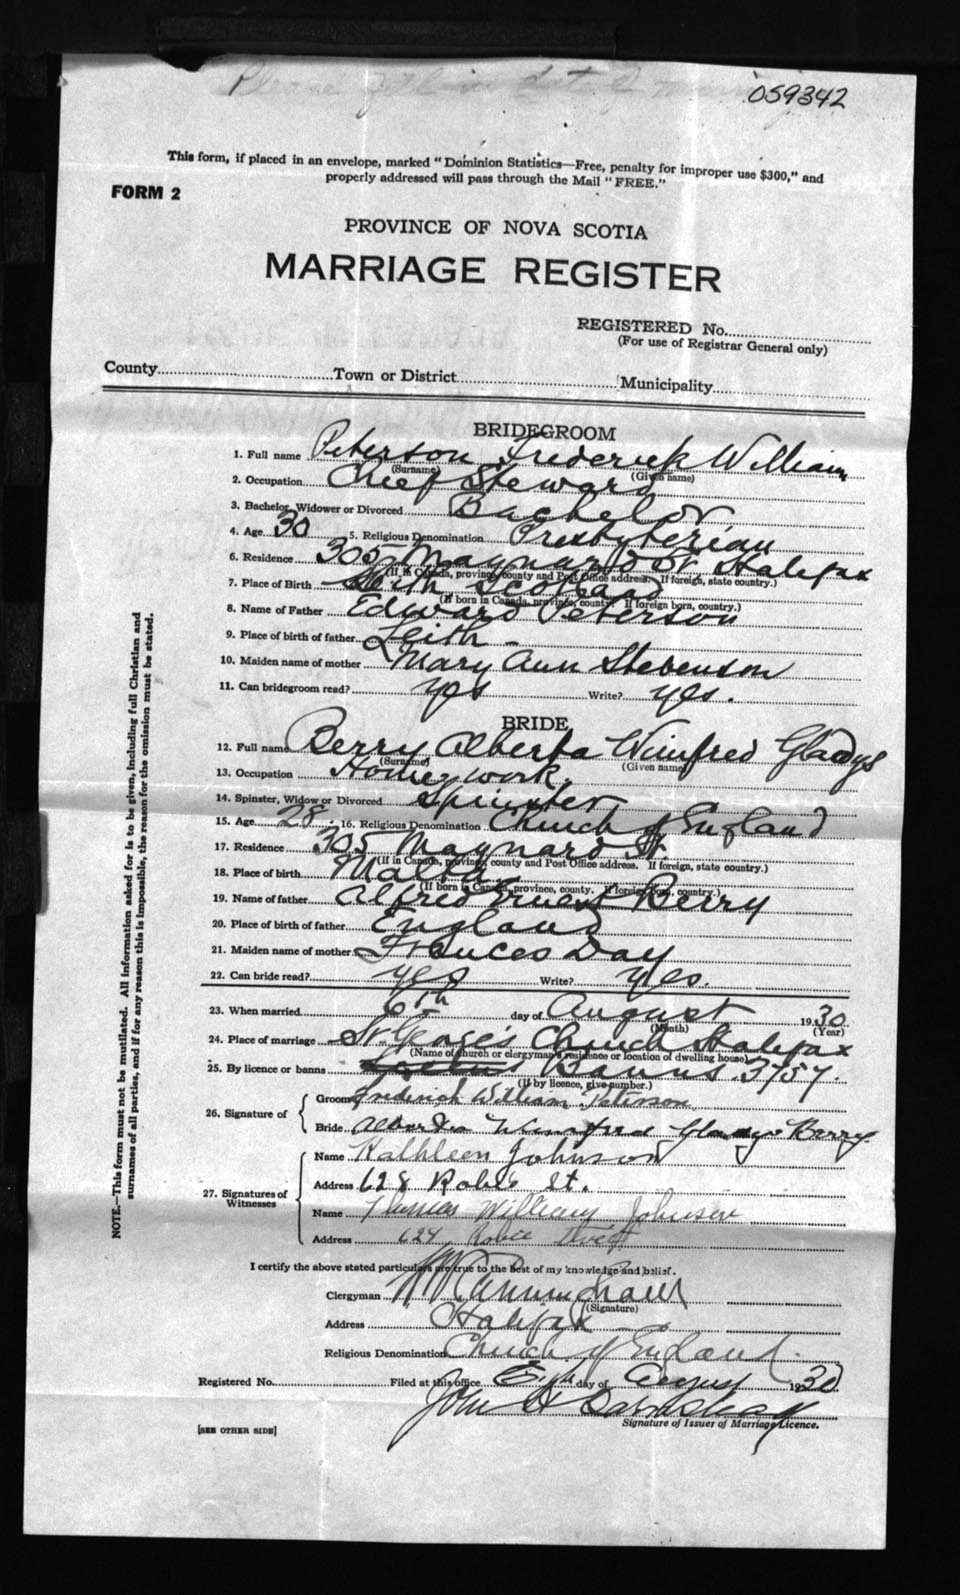 Please fill in date of
059342
This form, if placed in an envelope, marked "Dominion Statistics—Free, penalty for improper use $300," and
properly addressed will pass through the Mail "FREE."
FORM 2
PROVINCE OF NOVA SCOTIA
MARRIAGE REGISTER
REGISTERED No.
(For use of Registrar General only)
County Town or District Municipality
BRIDEGROOM
1. Full name Peterson Frederick William
(Surname) (Given name)
2. Occupation Chief Steward
3. Bachelor, Widower or Divorced Bachelor
4. Age 30 5. Religious Denomination Presbyterian
6. Residence 305 Maynard St Halifax
(If in Canada, province, county and Post Office address. If foreign, state country.)
7. Place of Birth Leith Scotland
(If born in Canada, province, county. If foreign born, country.)
8. Name of Father Edward Peterson
9. Place of birth of father Leith
10. Maiden name of mother Mary Ann Stevenson
11. Can bridegroom read? yes Write? yes.
BRIDE
12. Full name Berry Alberta Winifred Gladys
(Surname) (Given name)
13. Occupation Home work.
14. Spinster, Widow or Divorced Spinster
15. Age 28 16. Religious Denomination Church of England
17. Residence 305 Maynard St.
(If in Canada, province, county and Post Office address. If foreign, state country.)
18. Place of birth Malta
(If born in Canada, province, county. If foreign born, country.)
19. Name of father Alfred Ernest Berry
20. Place of birth of father England
21. Maiden name of mother Frances Day
22. Can bride read? yes Write? yes.
23. When married 6th day of August 1930
(Month) (Year)
24. Place of marriage St George's Church Halifax
(Name of church or clergyman's residence or location of dwelling house)
25. By licence or banns Banns. 3757.
(If by licence, give number.)
26. Signature of
Groom Frederick William Peterson
Bride Alberta Winifred Gladys Berry.
27. Signatures of Witnesses
Name Kathleen Johnson
Address 628 Robie St.
Name Thomas William Johnson
Address 624 Robie Street
I certify the above stated particulars are true to the best of my knowledge and belief.
Clergyman
(Signature)
Address Halifax
Religious Denomination Church of England.
Registered No. Filed at this office day of August 1930
John H
Signature of Issuer of Marriage Licence.
[SEE OTHER SIDE]
NOTE.—This form must not be mutilated. All information asked for is to be given, including full Christian and
surnames of all parties, and if for any reason this is impossible, the reason for the omission must be stated.